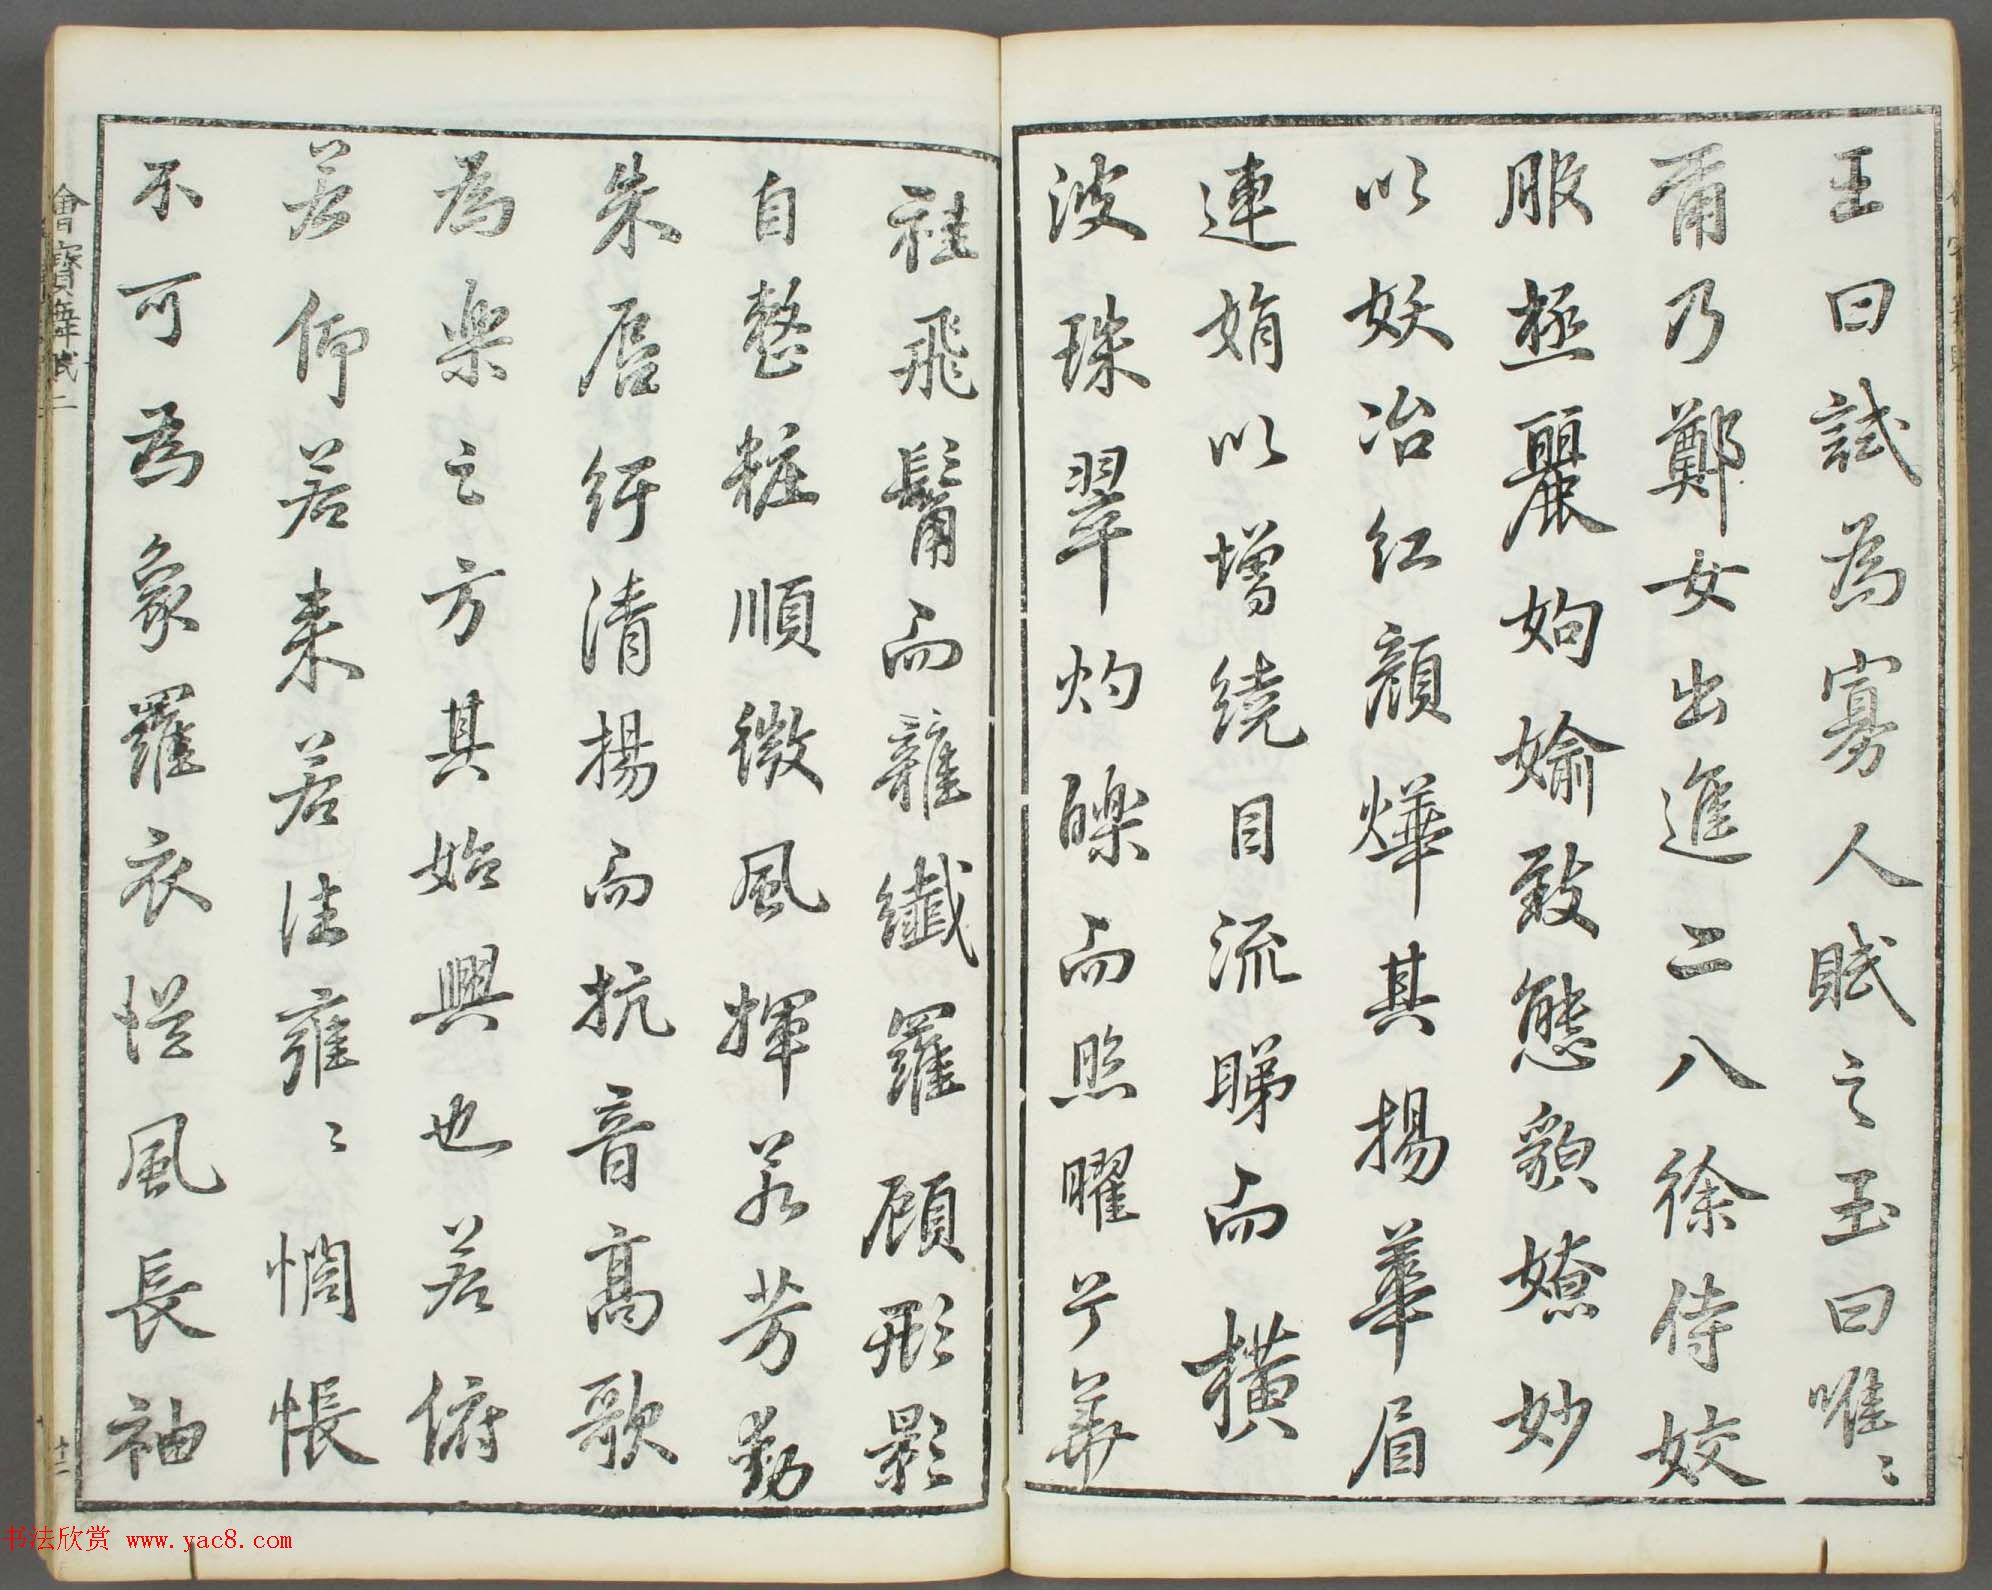 王曰試為寡人賦之玉曰唯〻
爾乃鄭女出進二八徐侍姣
服極麗姁婾致態貌嫽妙
以妖冶紅顏燁其揚華眉
連娟以增繞目流睇而橫
波珠翠灼皪而照曜兮華
袿飛髾而雜纖羅顧形影
自整粧順微風揮若芳動
朱脣紆清揚而抗音高歌
為樂之方其始興也若俯
若仰若來若往雍〻惆悵
不可為象羅衣從風長袖
會寶舞賦 二
十二
书法欣赏 www.yac8.com